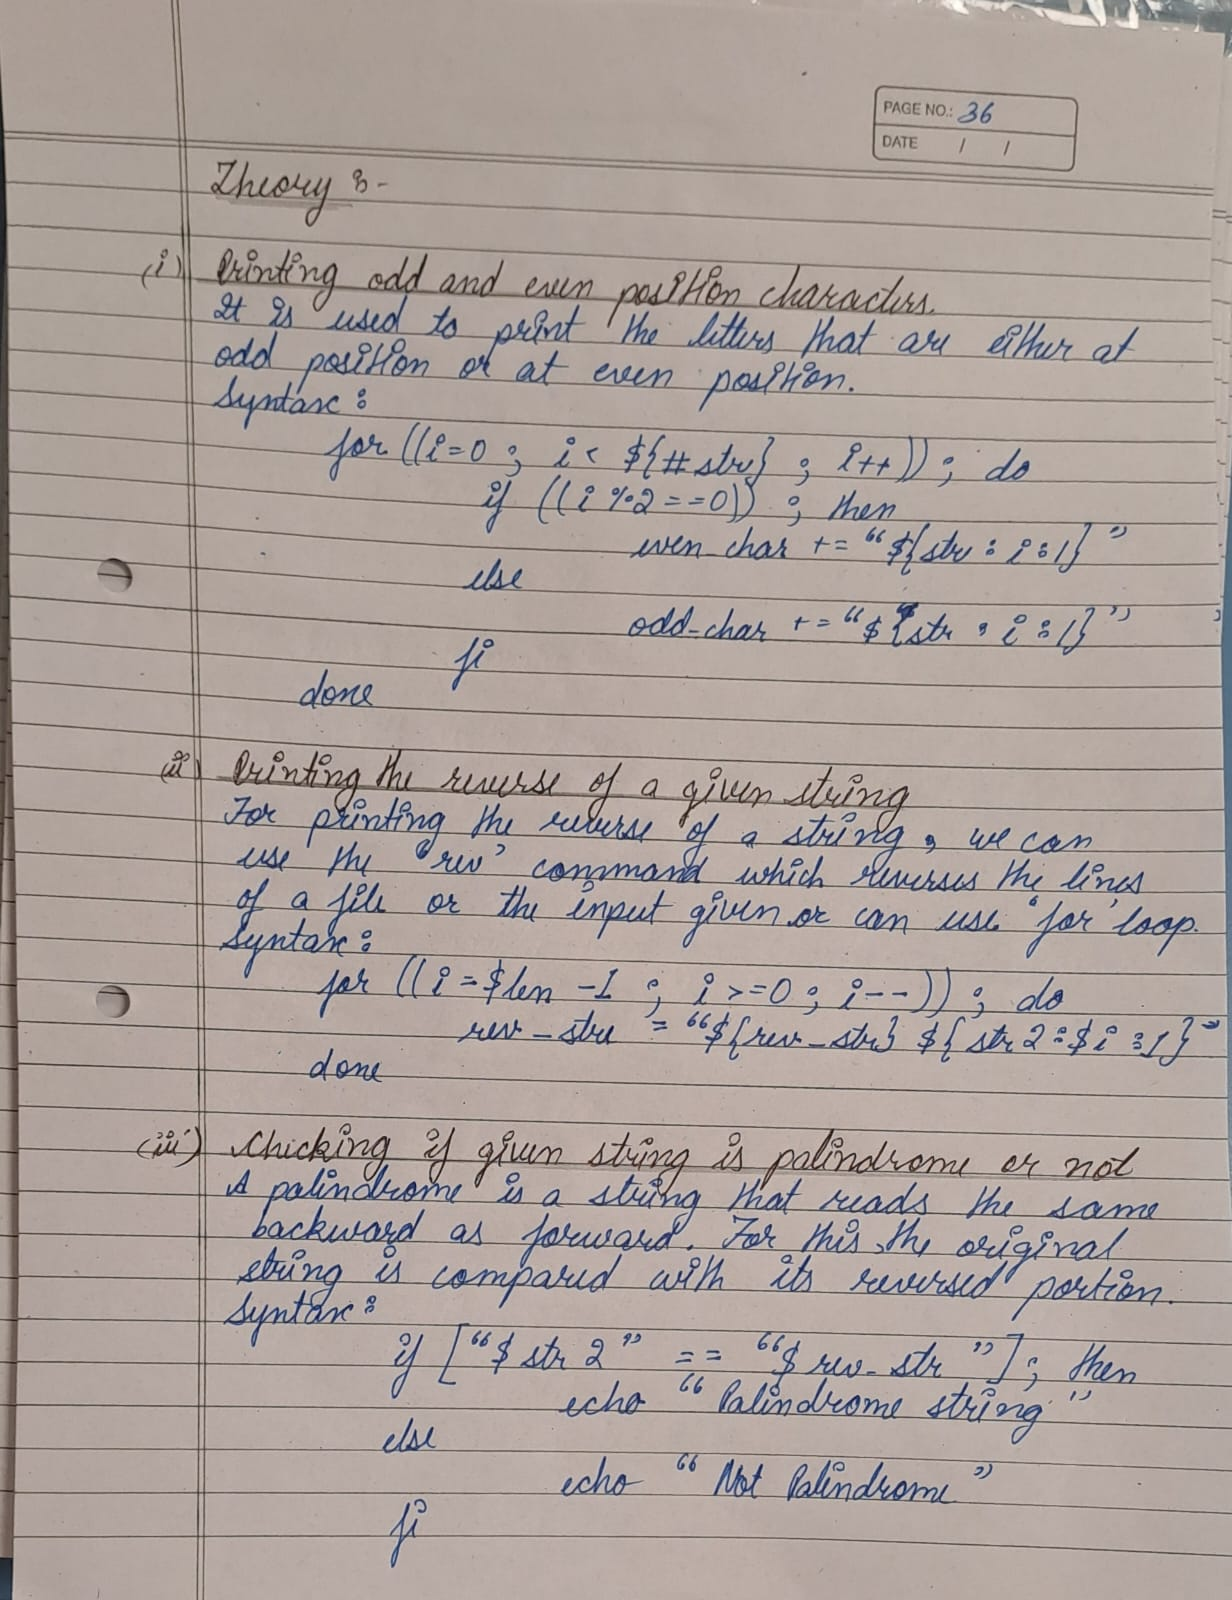 PAGE NO.: 36
DATE / /
Theory :-
(i) Printing odd and even position characters.
It is used to print the letters that are either at
odd position or at even position.
Syntax :
for ((i=0 ; i< ${#str} ; i++)) ; do
if ((i%2==0)) ; then
even_char += "${str : i :1}"
else
odd_char += "${str : i :1}"
fi
done
(ii) Printing the reverse of a given string
For printing the reverse of a string, we can
use the 'rev' command which reverses the lines
of a file or the input given or can use 'for' loop.
Syntax :
for ((i=$len -1 ; i>=0 ; i--)) ; do
rev_str = "${rev_str} ${str2:$i:1}"
done
(iii) Checking if given string is palindrome or not
A palindrome is a string that reads the same
backward as forward. For this, the original
string is compared with its reversed portion.
Syntax :
if ["$str2" == "$rev_str"] ; then
echo "Palindrome string"
else
echo "Not Palindrome"
fi